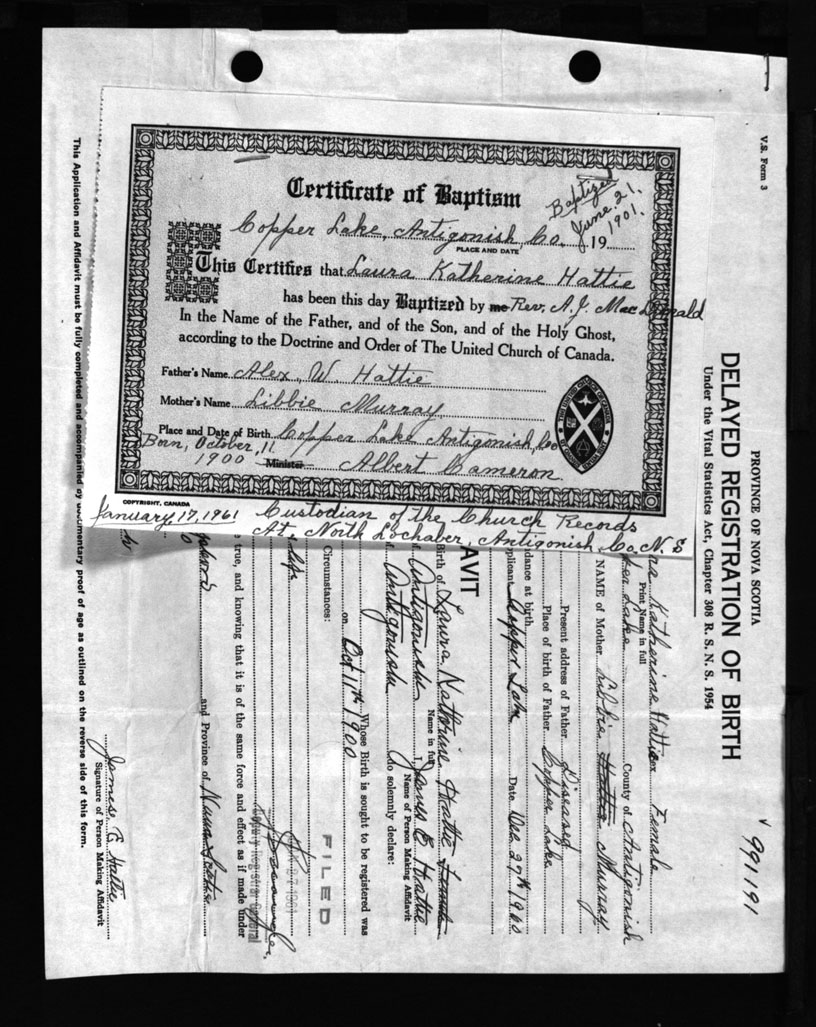 Certificate of Baptism
Baptized
June 21.
1901.
Copper Lake, Antigonish, Co. 19
PLACE AND DATE
This Certifies that Laura Katherine Hattie
has been this day Baptized by me Rev, A. J. MacDonald
In the Name of the Father, and of the Son, and of the Holy Ghost,
according to the Doctrine and Order of The United Church of Canada.
Father's Name Alex, W Hattie
Mother's Name Libbie Murray
Place and Date of Birth Copper Lake Antigonish, Co
Born, October, 11
1900 Minister Albert Cameron
COPYRIGHT, CANADA
January 17, 1961 Custodian of the Church Records
At, North Lochaber, Antigonish Co. N. S
V.S. Form 3
PROVINCE OF NOVA SCOTIA
DELAYED REGISTRATION OF BIRTH
Under the Vital Statistics Act, Chapter 308 R. S. N. S. 1954
991191
Katherine Hattie Sex Female
Print Name in full
Lake County of Antigonish
NAME of Mother Libbie Hattie Murray
Present address of Father Diseased
Place of birth of Father Copper Lake
dance at birth
pplicant Copper Lake Date Dec 27th 1960
AVIT
Birth of Laura Katherine Hattie
Name in full
Antigonish I, James E Hattie
Name of Person Making Affidavit
of Antigonish do solemnly declare:
Whose Birth is sought to be registered was
on Oct 11th 1900
Circumstances:
FILED
27 1961
Deputy Registrar General
e true, and knowing that it is of the same force and effect as if made under
and Province of Nova Scotia
James E Hattie
Signature of Person Making Affidavit
This Application and Affidavit must be fully completed and accompanied by documentary proof of age as outlined on the reverse side of this form.